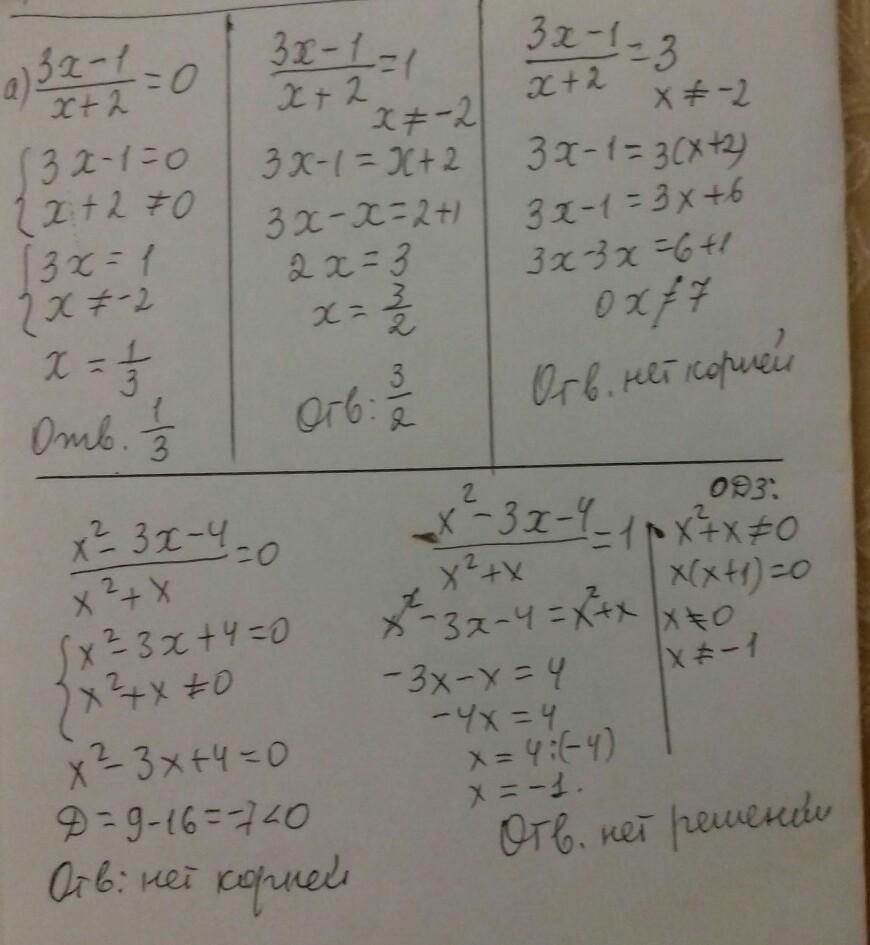 а) (3x-1)/(x+2) = 0
{ 3x-1=0
{ x+2 ≠ 0
{ 3x = 1
{ x ≠ -2
x = 1/3
Отв. 1/3
(3x-1)/(x+2) = 1
x ≠ -2
3x-1 = x+2
3x-x = 2+1
2x = 3
x = 3/2
Отв: 3/2
(3x-1)/(x+2) = 3
x ≠ -2
3x-1 = 3(x+2)
3x-1 = 3x+6
3x-3x = 6+1
0x ≠ 7
Отв. нет корней
(x²-3x-4)/(x²+x) = 0
{ x²-3x+4=0
{ x²+x ≠ 0
x²-3x+4=0
D = 9-16 = -7 < 0
Отв: нет корней
(x²-3x-4)/(x²+x) = 1
x²-3x-4 = x²+x
-3x-x = 4
-4x = 4
x = 4:(-4)
x = -1.
Отв. нет решений
ОДЗ:
x²+x ≠ 0
x(x+1)=0
x ≠ 0
x ≠ -1